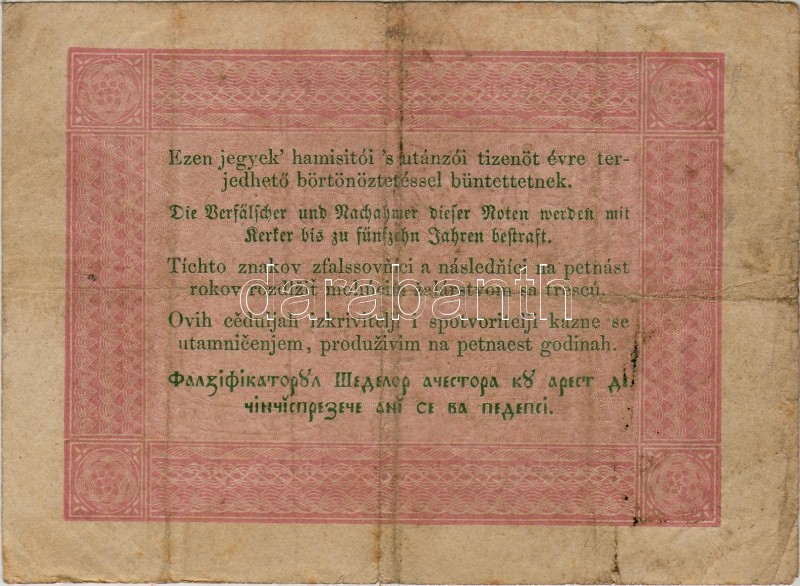 Ezen jegyek’ hamisitói ’s utánzói tizenöt évre ter-
jedhető börtönöztetéssel büntettetnek.
Die Verfälscher und Nachahmer dieser Noten werden mit
Kerker bis zu fünfzehn Jahren bestraft.
Tíchto znakov zfalssovňíci a následňíci na petnást
rokov žalárstvom sa trescú.
darabanth
Ovih cěduljah izkrivitelji i spotvoritelji kazne se
utamničenjem, produživim na petnaest godinah.
Фалꙁіфікаторꙋл Шеделор ачестора кꙋ арест де
чінчіспреꙁече ані се ва педепсі.